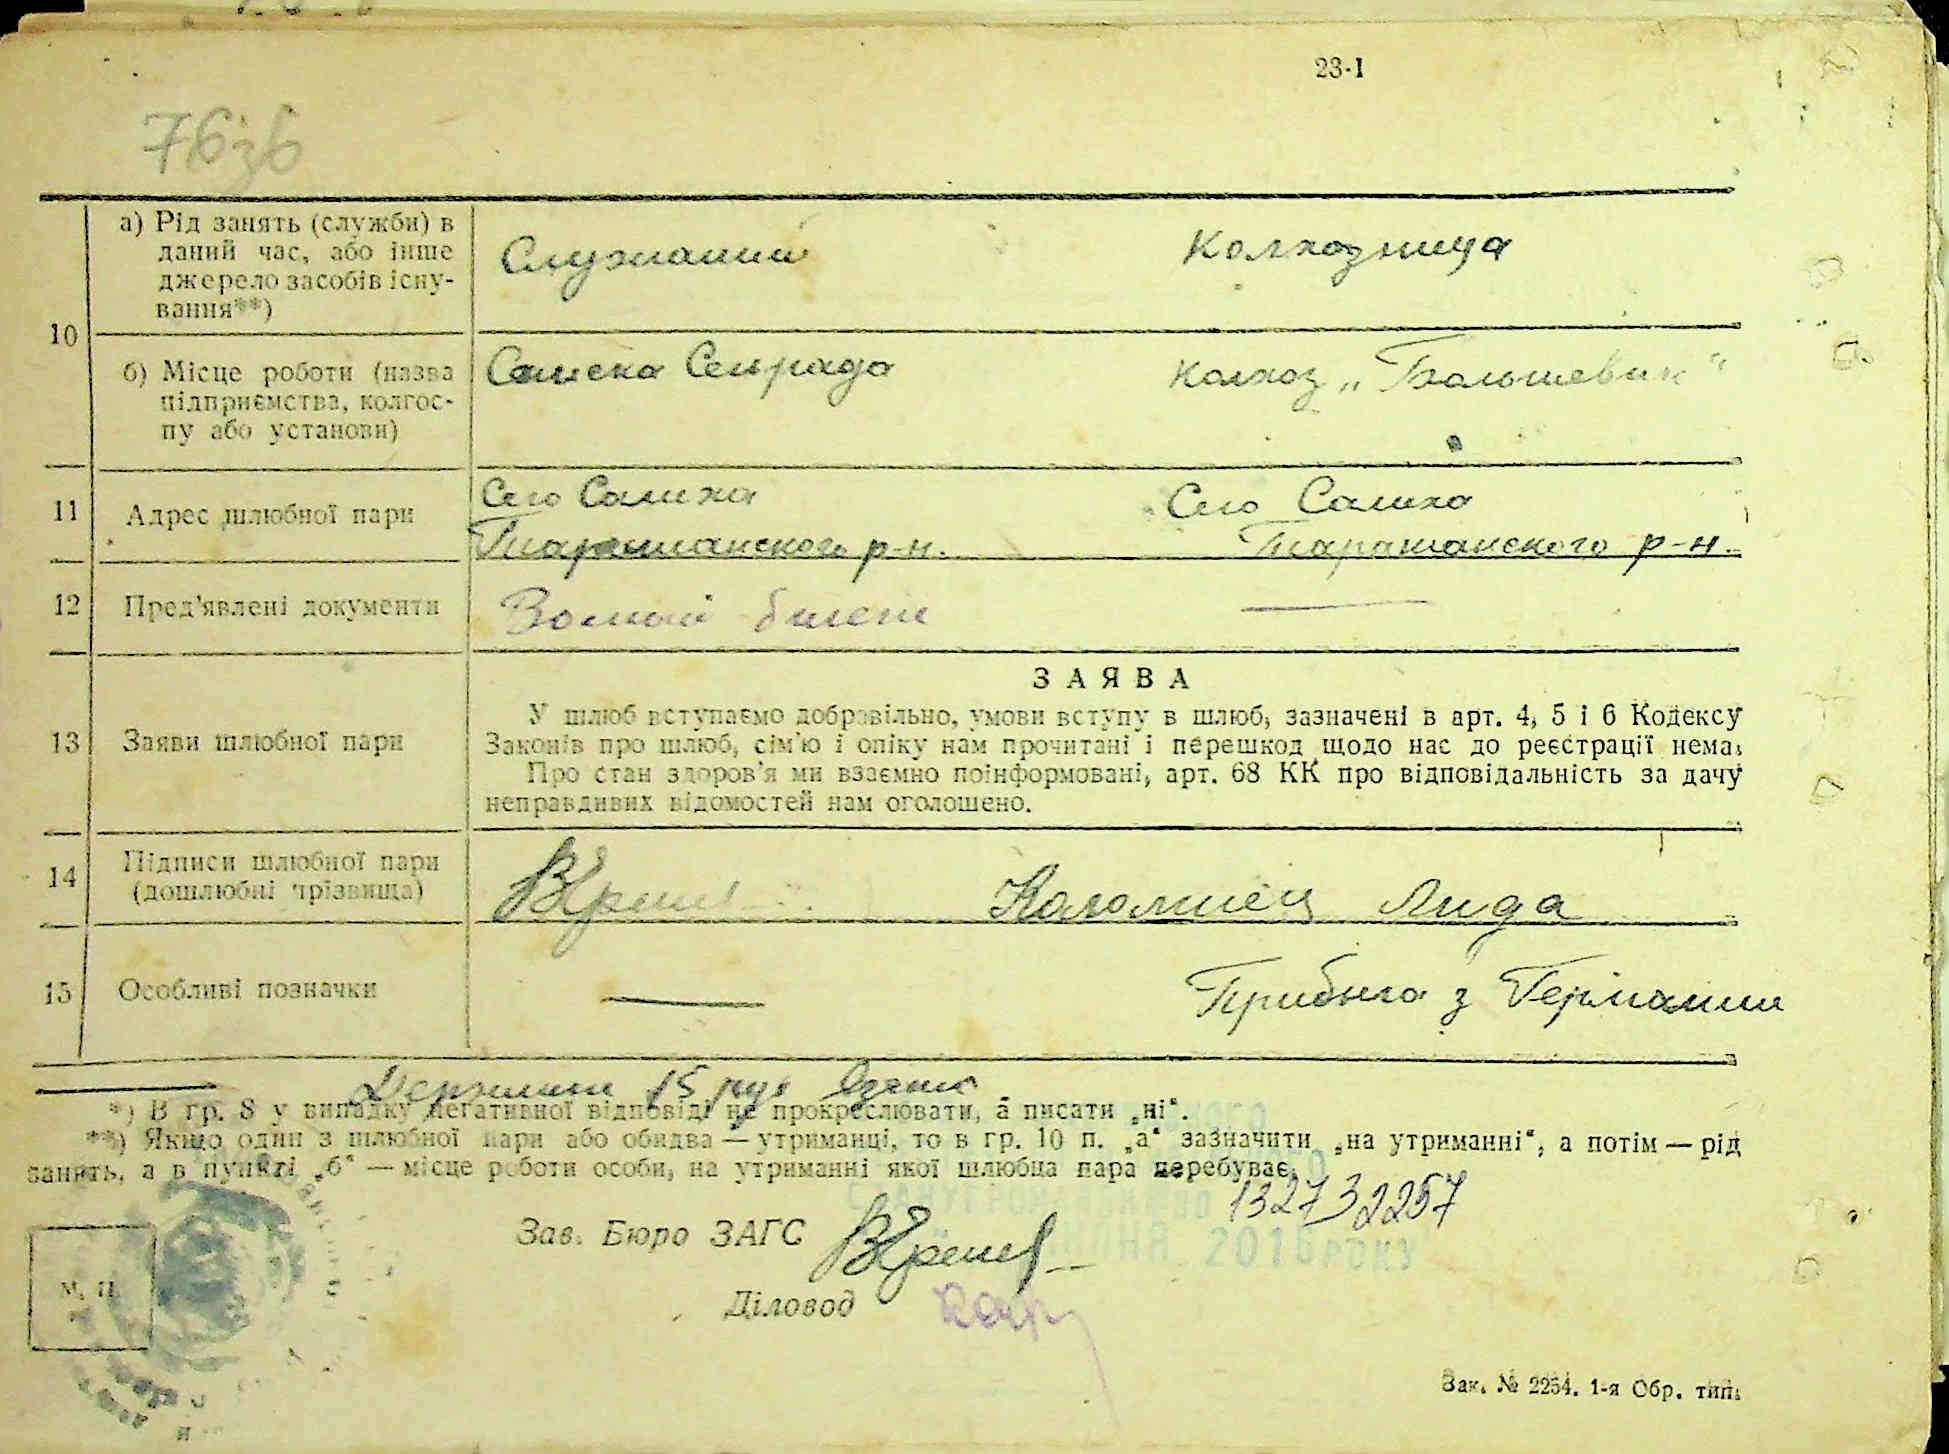 23-І
76зв
10
а) Рід занять (служби) в
даний час, або інше
джерело засобів існу-
вання**)
Служащий
Колхозница
б) Місце роботи (назва
підприємства, колгос-
пу або установи)
Сельрада
колхоз „Большевик"
11
Адрес шлюбної пари
Село Салиха
Таращанского р-н.
Село Салиха
Таращанского р-н.
12
Пред'явлені документи
билет
13
Заяви шлюбної пари
ЗАЯВА
У шлюб вступаємо добровільно, умови вступу в шлюб, зазначені в арт. 4, 5 і 6 Кодексу
Законів про шлюб, сім'ю і опіку нам прочитані і перешкод щодо нас до реєстрації нема.
Про стан здоров'я ми взаємно поінформовані, арт. 68 КК про відповідальність за дачу
неправдивих відомостей нам оголошено.
14
Підписи шлюбної пари
(дошлюбні прізвища)
Коломиец Лида
15
Особливі позначки
Прибула з Германии
15 руб
*) В гр. 8 у випадку негативної відповіді не прокреслювати, а писати „ні".
**) Якщо один з шлюбної пари або обидва — утриманці, то в гр. 10 п. „а" зазначити „на утриманні", а потім — рід
занять, а в пункті „б" — місце роботи особи, на утриманні якої шлюбна пара перебуває.
132732257
Зав. Бюро ЗАГС
2016 РОКУ
Діловод
М. П.
Зак. № 2254. 1-я Обр. тип.